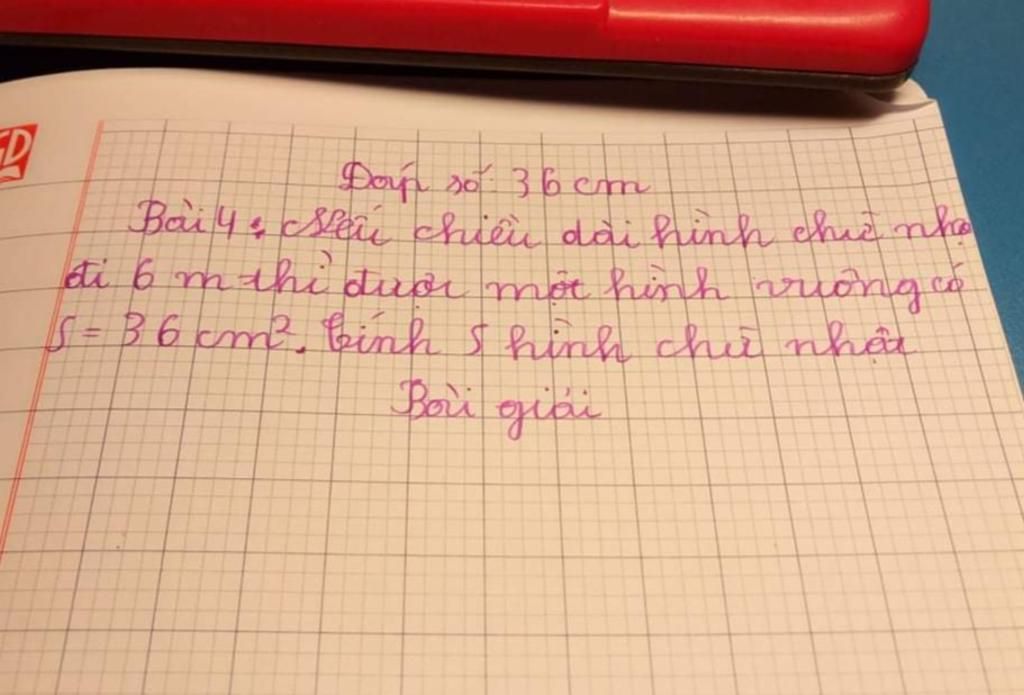 GD
Đáp số: 36 cm
Bài 4: Nếu chiều dài hình chữ nhậ
đi 6 m thì được một hình vuông có
S = 36 cm². tính S hình chữ nhật
Bài giải